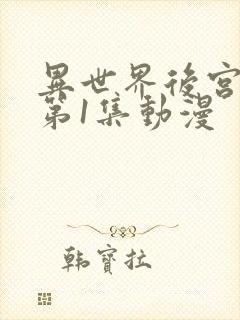 異世界後宮
第1集動漫
韩寶拉